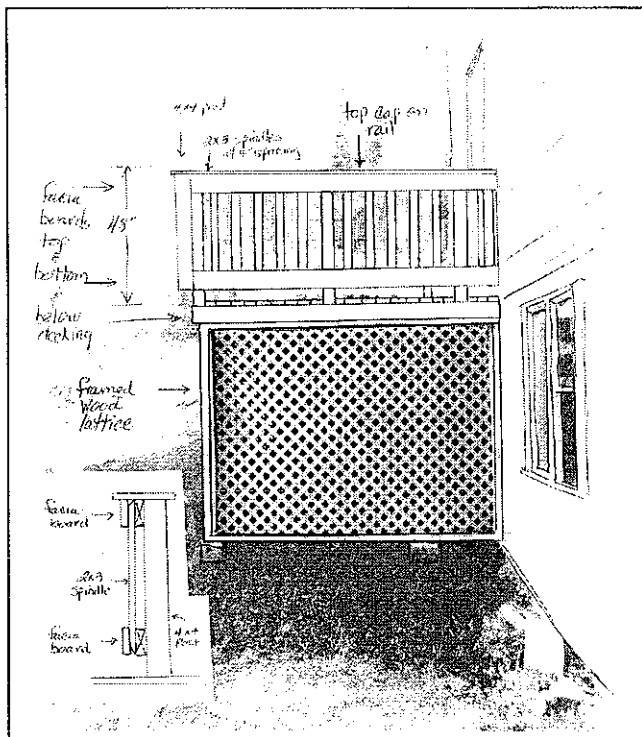 4x4 post
2x3 spindles
w/ 4" spacing
top cap on
rail
fascia
boards
top
&
bottom
&
below
decking
45"
framed
wood
lattice
fascia
board
2x3
spindle
fascia
board
4x4
Post